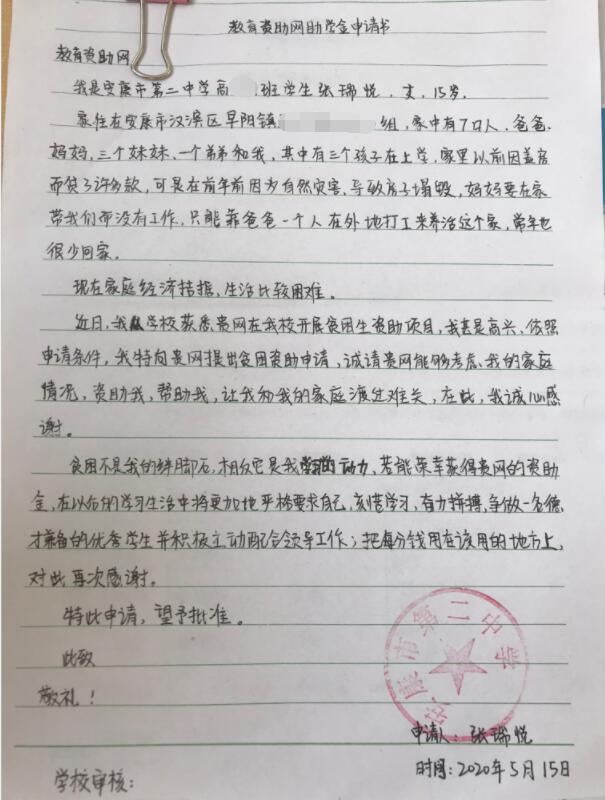 教育资助网助学金申请书
教育资助网
我是安康市第二中学高 班学生张瑞悦，女，15岁。
家住在安康市汉滨区早阳镇 组，家中有7口人，爸爸、
妈妈，三个妹妹、一个弟弟和我，其中有三个孩子在上学，家里以前因盖房
而贷了许多款，可是在前年前因为自然灾害，导致房子塌毁，妈妈要在家
带我们而没有工作，只能靠爸爸一个人在外地打工来养活这个家，常年也
很少回家。
现在家庭经济拮据，生活比较困难。
近日，我从学校获悉贵网在我校开展贫困生资助项目，我甚是高兴，依照
申请条件，我特向贵网提出贫困资助申请，诚请贵网能够考虑我的家庭
情况，资助我，帮助我，让我和我的家庭渡过难关，在此，我诚心感
谢。
贫困不是我的绊脚石，相反它是我学习的动力，若能荣幸获得贵网的资助
金，在以后的学习生活中将更加地严格要求自己，刻苦学习，奋力拼搏，争做一名德
才兼备的优秀学生并积极主动配合领导工作；把每分钱用在该用的地方上，
对此再次感谢。
特此申请，望予批准。
此致
敬礼！
安康市第二中学
申请人：张瑞悦
时间：2020年5月15日
学校审核：